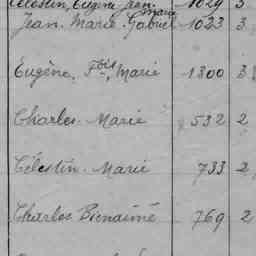 Célestin, Eugène Jean-Marie 1029 3
Jean-Marie-Gabriel 1023 3
Eugène, Fois, Marie 1300 3
Charles-Marie 532 2
Célestin-Marie 733 2
Charles Bienaimé 769 2